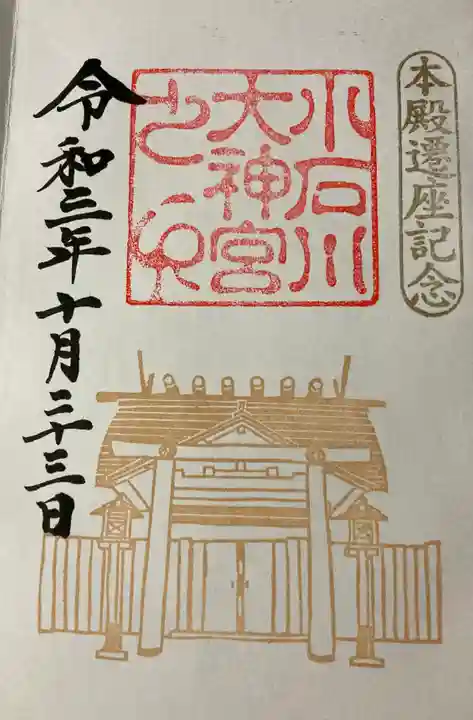 本殿遷座記念
小石川
大神宮
之印
令和三年十月二十三日